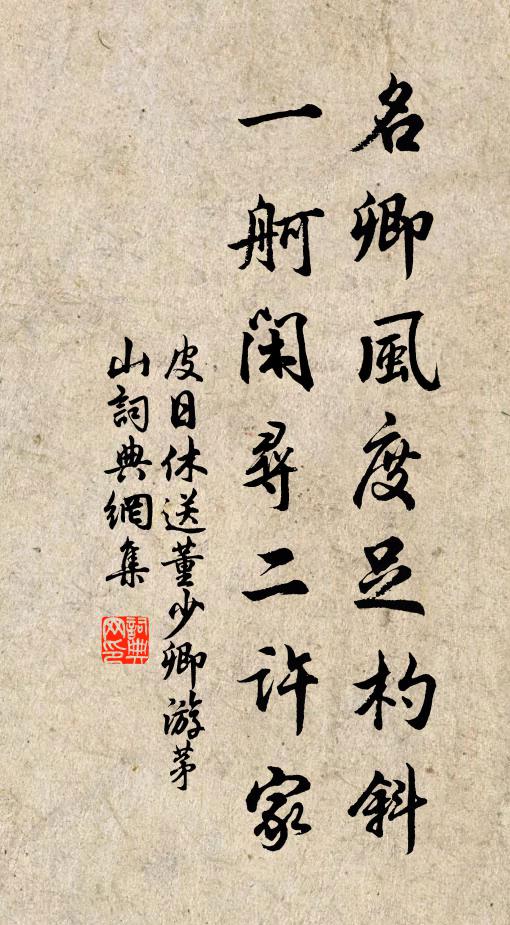 名卿風度足杓斜
一舸閑尋二許家
皮日休送董少卿游茅
山詞典網集
詞典
网印